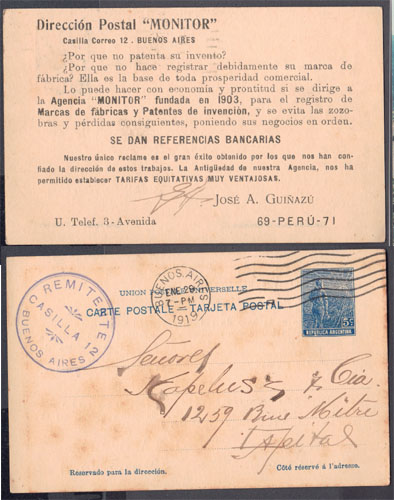 Dirección Postal "MONITOR"
Casilla Correo 12 . BUENOS AIRES
¿Por que no patenta su invento?
¿Por que no hace registrar debidamente su marca de
fábrica? Ella es la base de toda prosperidad comercial.
Lo puede hacer con economía y prontitud si se dirige a
la Agencia "MONITOR" fundada en 1903, para el registro de
Marcas de fábricas y Patentes de invención, y se evita las zozo-
bras y pérdidas consiguientes, poniendo sus negocios en orden.
SE DAN REFERENCIAS BANCARIAS
Nuestro único reclame es el gran éxito obtenido por los que nos han con-
fiado la dirección de estos trabajos. La Antigüedad de nuestra Agencia, nos
ha permitido establecer TARIFAS EQUITATIVAS MUY VENTAJOSAS.
JOSÉ A. GUIÑAZÚ
U. Telef. 3-Avenida
69-PERÚ-71
REMITENTE
CASILLA 12
BUENOS AIRES
BUENOS AIRES
ENE 29
7-PM
1915
UNION POSTALE UNIVERSELLE
CARTE POSTALE - TARJETA POSTAL
5 Cs
REPUBLICA ARGENTINA
Señores
Kapelusz y Cia.
1259 Bme Mitre
Capital
Reservado para la dirección.
Côté réservé à l'adresse.